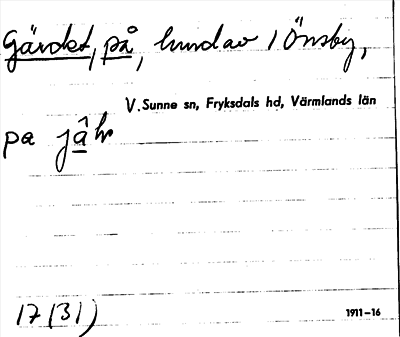 Gärdet, på, lundar i Önsby,
V. Sunne sn, Fryksdals hd, Värmlands län
pa jâ̱h
17(31)
1911-16